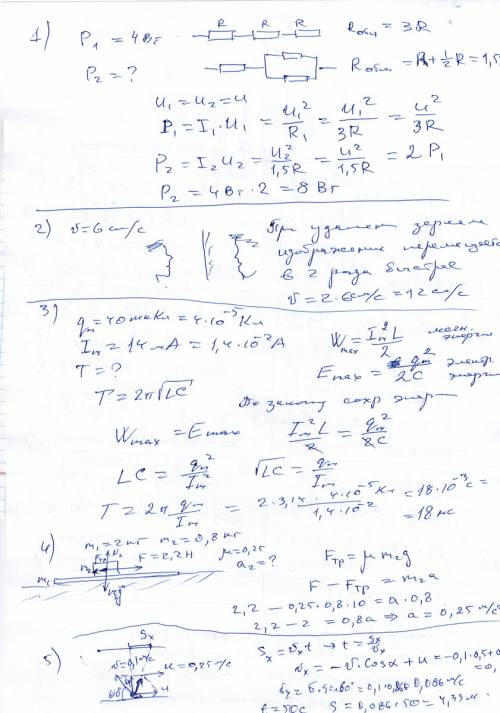 1) P₁ = 4Вт
R R R
Rобщ = 3R
P₂ = ?
Rобщ = R + ½R = 1,5
U₁ = U₂ = U
P₁ = I₁ · U₁ = U₁²/R₁ = U₁²/3R = U²/3R
P₂ = I₂ U₂ = U₂²/1,5R = U²/1,5R = 2 P₁
P₂ = 4Вт · 2 = 8 Вт
2) υ = 6 см/с
При удален зеркала
изображение перемещается
в 2 раза быстрее
υ = 2·6см/с = 12 см/с
3) qm = 40 мкКл = 4·10⁻⁵ Кл
Im = 14 мА = 1,4·10⁻²А
T = ?
Wmax = Im²L/2 магн. энергия
Emax = qm²/2C электр. энергия
T = 2π√LC
По закону сохр энерг
Wmax = Emax
Im²L/2 = qm²/2C
LC = qm²/Im²
√LC = qm/Im
T = 2π qm/Im = 2·3,14·4·10⁻⁵Кл/1,4·10⁻² = 18·10⁻³с =
= 18 мс
4) m₁ = 2кг m₂ = 0,8 кг
F = 2,2Н μ = 0,25
a₂ = ?
m₁
m₂g
Fтр = μ m₂g
F − Fтр = m₂a
2,2 − 0,25·0,8·10 = a·0,8
2,2 − 2 = 0,8a ⇒ a = 0,25 м/с
5) Sx
υ = 0,1м/с
u = 0,25м/с
60°
Sx = υx t → t = Sx/υx
υx = −υ·cosα + u = −0,1·0,5+0
= 0,
t = 50c
S = 0,086·50 = 4,33м